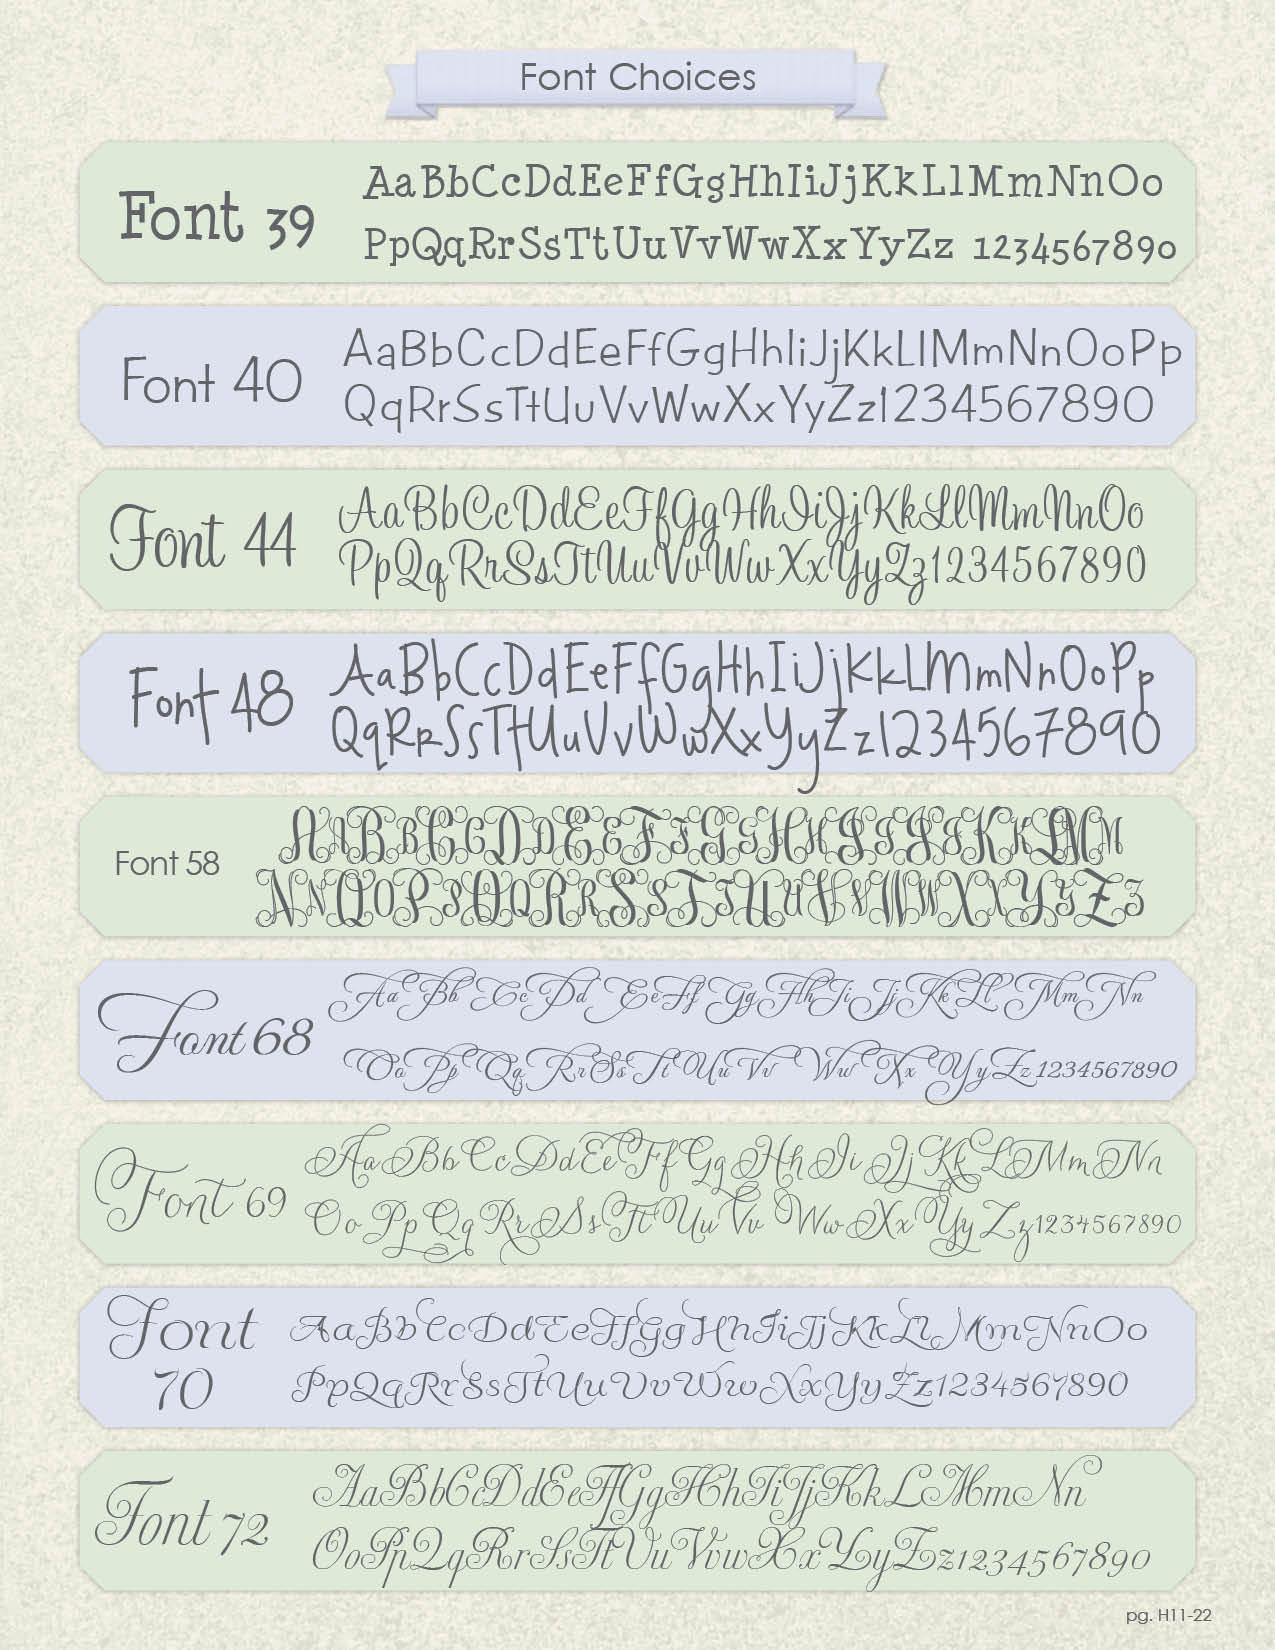 Font Choices
Font 39
AaBbCcDdEeFfGgHhIiJjKkLlMmNnOo
PpQqRrSsTtUuVvWwXxYyZz 1234567890
Font 40
AaBbCcDdEeFfGgHhIiJjKkLlMmNnOoPp
QqRrSsTtUuVvWwXxYyZz1234567890
Font 44
AaBbCcDdEeFfGgHhIiJjKkLlMmNnOo
PpQqRrSsTtUuVvWwXxYyZz1234567890
Font 48
AaBbCcDdEeFfGgHhIiJjKkLMmNnOoPp
QqRrSsTtUuVvWwXxYyZz1234567890
Font 58
Font 68
AaBbCcDdEeFfGgHhIiJjKkLlMmNn
OoPpQqRrSsTtUuVvWwXxYyZz1234567890
Font 69
AaBbCcDdEeFfGgHhIiJjKkLMmNn
OoPpQqRrSsTtUuVvWwXxYyZz1234567890
Font
70
AaBbCcDdEeFfGgHhIiJjKkLlMmNnOo
PpQqRrSsTtUuVvWwXxYyZz1234567890
Font 72
AaBbCcDdEeFfGgHhIiJjKkLMmNn
OoPpQqRrSsTtUuVvwXxYyZz1234567890
pg. H11-22